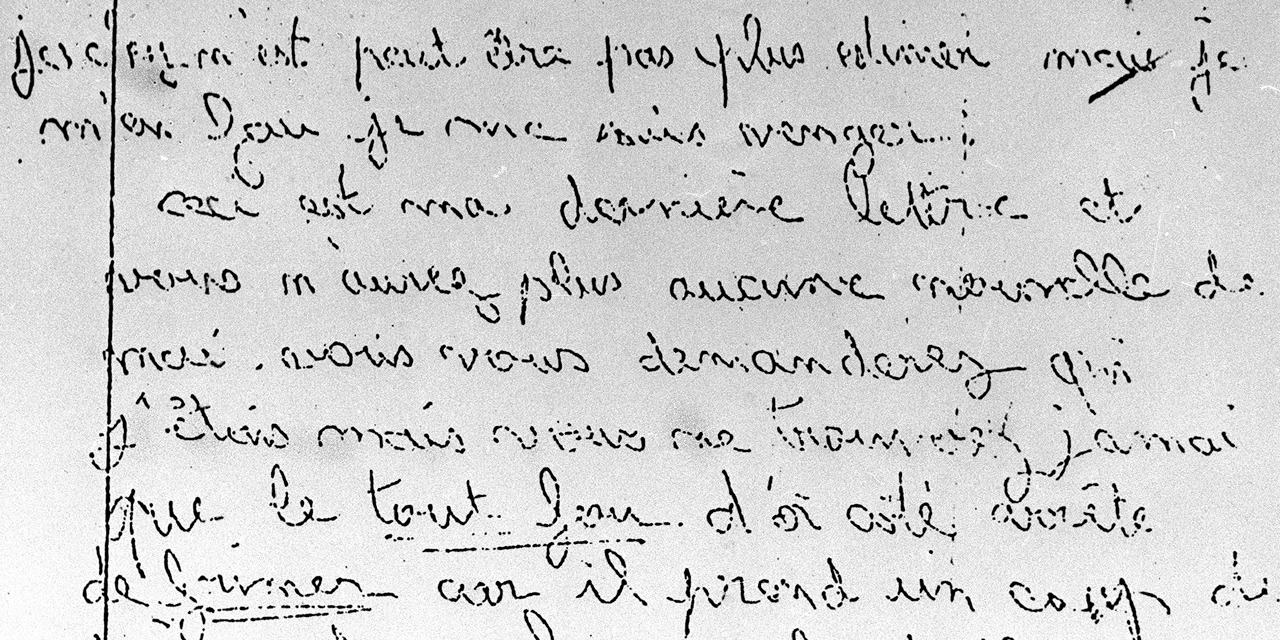 m'est peut être pas plus estimer mais je
m'en fou je me suis venger.
ceci est ma dernière lettre et
vous n'aurez plus aucune nouvelle de
moi. vous vous demanderez qui
j'étais mais vous ne trouviez jamai
que le tout fou d'à côté arrête
de frimer car il prend un coup de